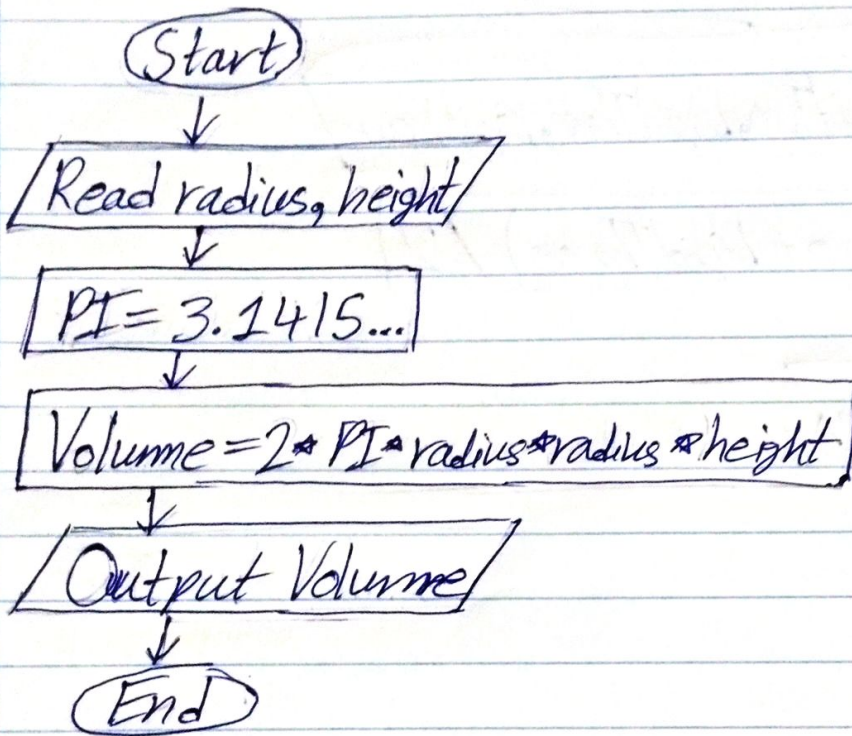 Start
Read radius, height
PI = 3.1415...
Volume = 2 * PI * radius * radius * height
Output Volume
End